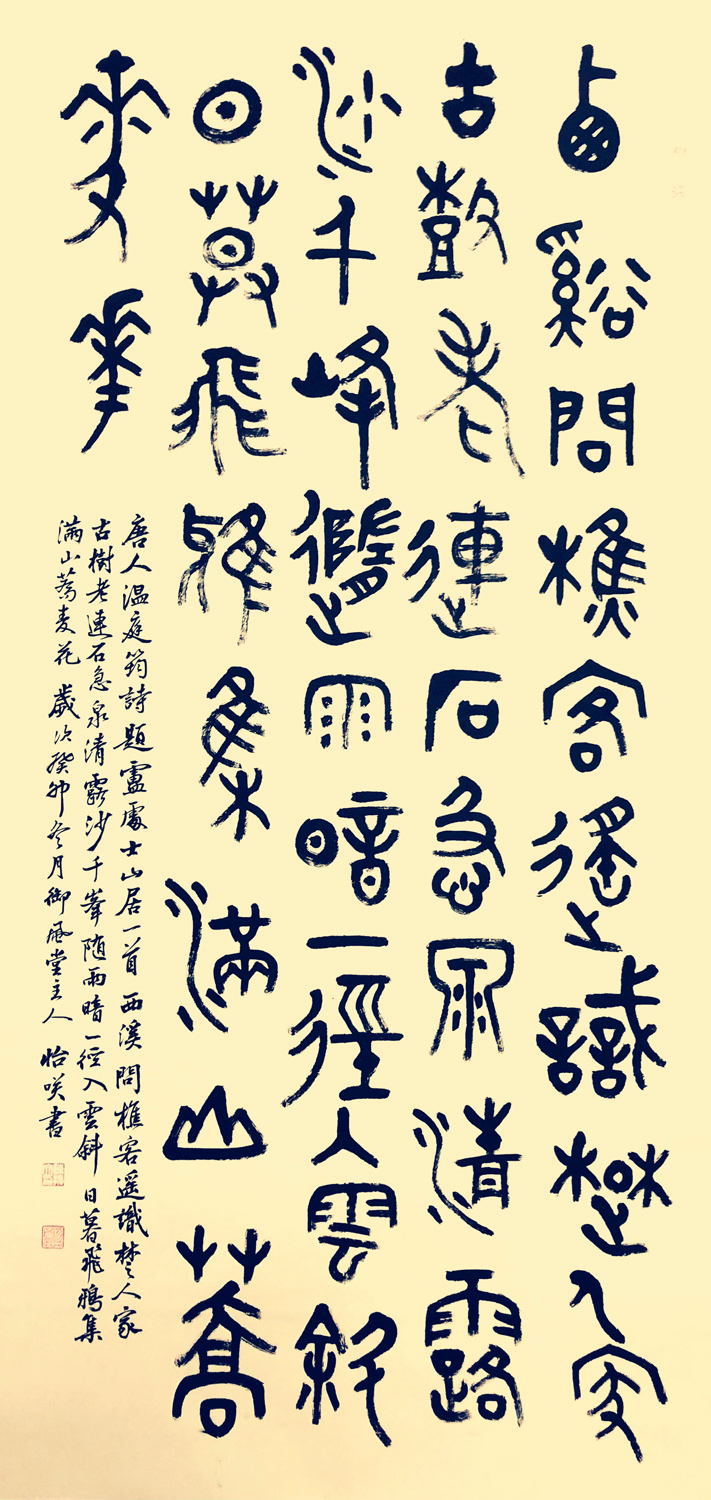 西谿問樵客遙識楚人家
古樹老連石急泉清露
沙千峰隨雨暗一徑入雲斜
日暮飛鴉集滿山蕎
麥華
唐人温庭筠詩題盧處士山居一首 西溪問樵客遥識楚人家
古樹老連石急泉清露沙千峯随雨暗一徑入雲斜日暮飛鴉集
滿山蕎麦花 歲次癸卯冬月御風堂主人 怡咲書